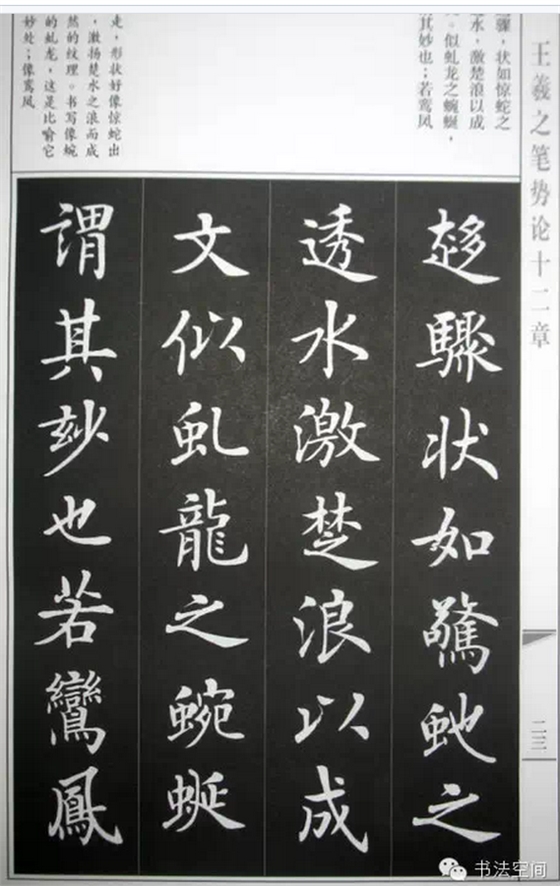 王羲之笔势论十二章
骤，状如惊蛇之
水，激楚浪以成
。似虬龙之蜿蜒，
其妙也；若鸾凤
走，形状好像惊蛇出
，激扬楚水之浪而成
然的纹理。书写像蜿
的虬龙，这是比喻它
妙处；像鸾凤
趍驟状如驚虵之
透水激楚浪以成
文似虬龍之蜿蜒
謂其玅也若鸞鳳
二三
书法空间